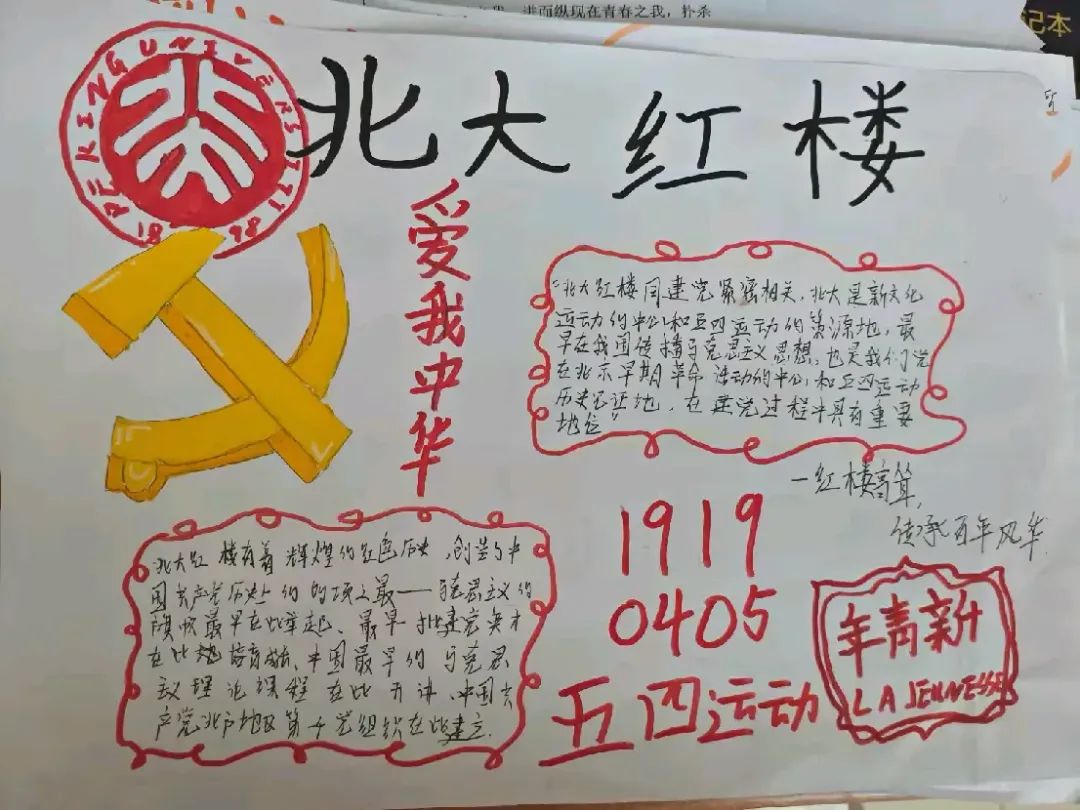 进而纵现在青春之我，扑杀
记本
PEKING UNIVERSITY
1898
北大红楼
爱我中华
"北大红楼同建党紧密相关，北大是新文化
运动的中心和五四运动的策源地，最
早在我国传播马克思主义思想，也是我们党
在北京早期革命活动的中心和五四运动
历史见证地，在建党过程中具有重要
地位"
一红楼高耸，
传承百年风华
北大红楼有着辉煌的红色历史，创造了中
国共产党历史上的的项之最——马克思主义的
旗帜最早在此举起、最早一批建党英才
在此地培育成长、中国最早的马克思
主义理论课程在此开讲、中国共
产党北方地区第一个党组织在此建立.
1919
0405
五四运动
年青新
LA JEUNESSE